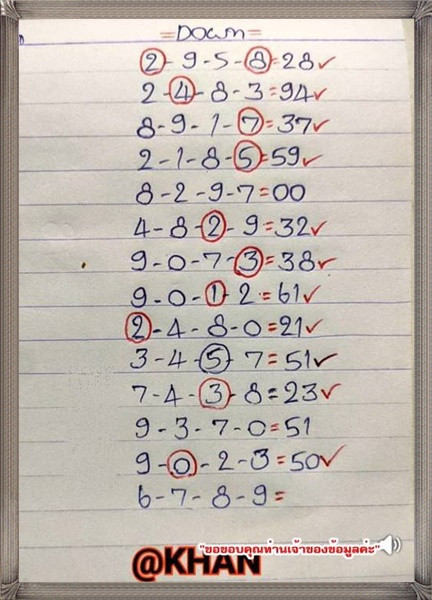 =Down=
2-9-5-8=28✓
2-4-8-3=94✓
8-9-1-7=37✓
2-1-8-5=59✓
8-2-9-7=00
4-8-2-9=32✓
9-0-7-3=38✓
9-0-1-2=61✓
2-4-8-0=21✓
3-4-5-7=51✓
7-4-3-8=23✓
9-3-7-0=51
9-0-2-3=50✓
6-7-8-9=
"ขอขอบคุณท่านเจ้าของข้อมูลค่ะ"
@KHAN